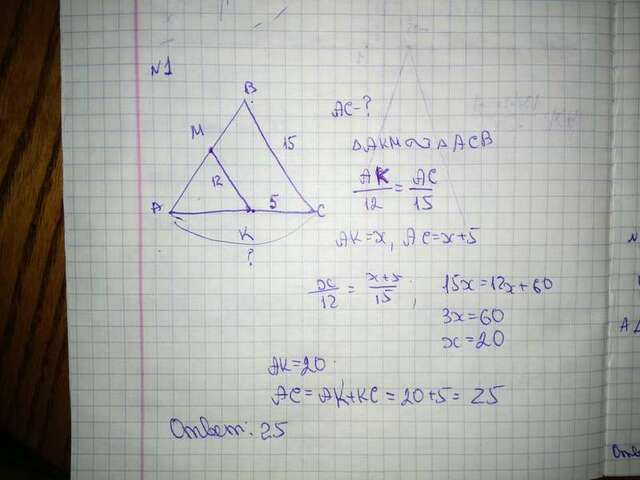 N1
B
AC-?
M
15
△AKM∾△ACB
12
AK/12 = AC/15
A
5
C
K
AK=x, AC=x+5
?
x/12 = x+5/15; 15x=12x+60
3x=60
x=20
AK=20
AC=AK+KC=20+5=25
Ответ: 25
N
A△
Отв